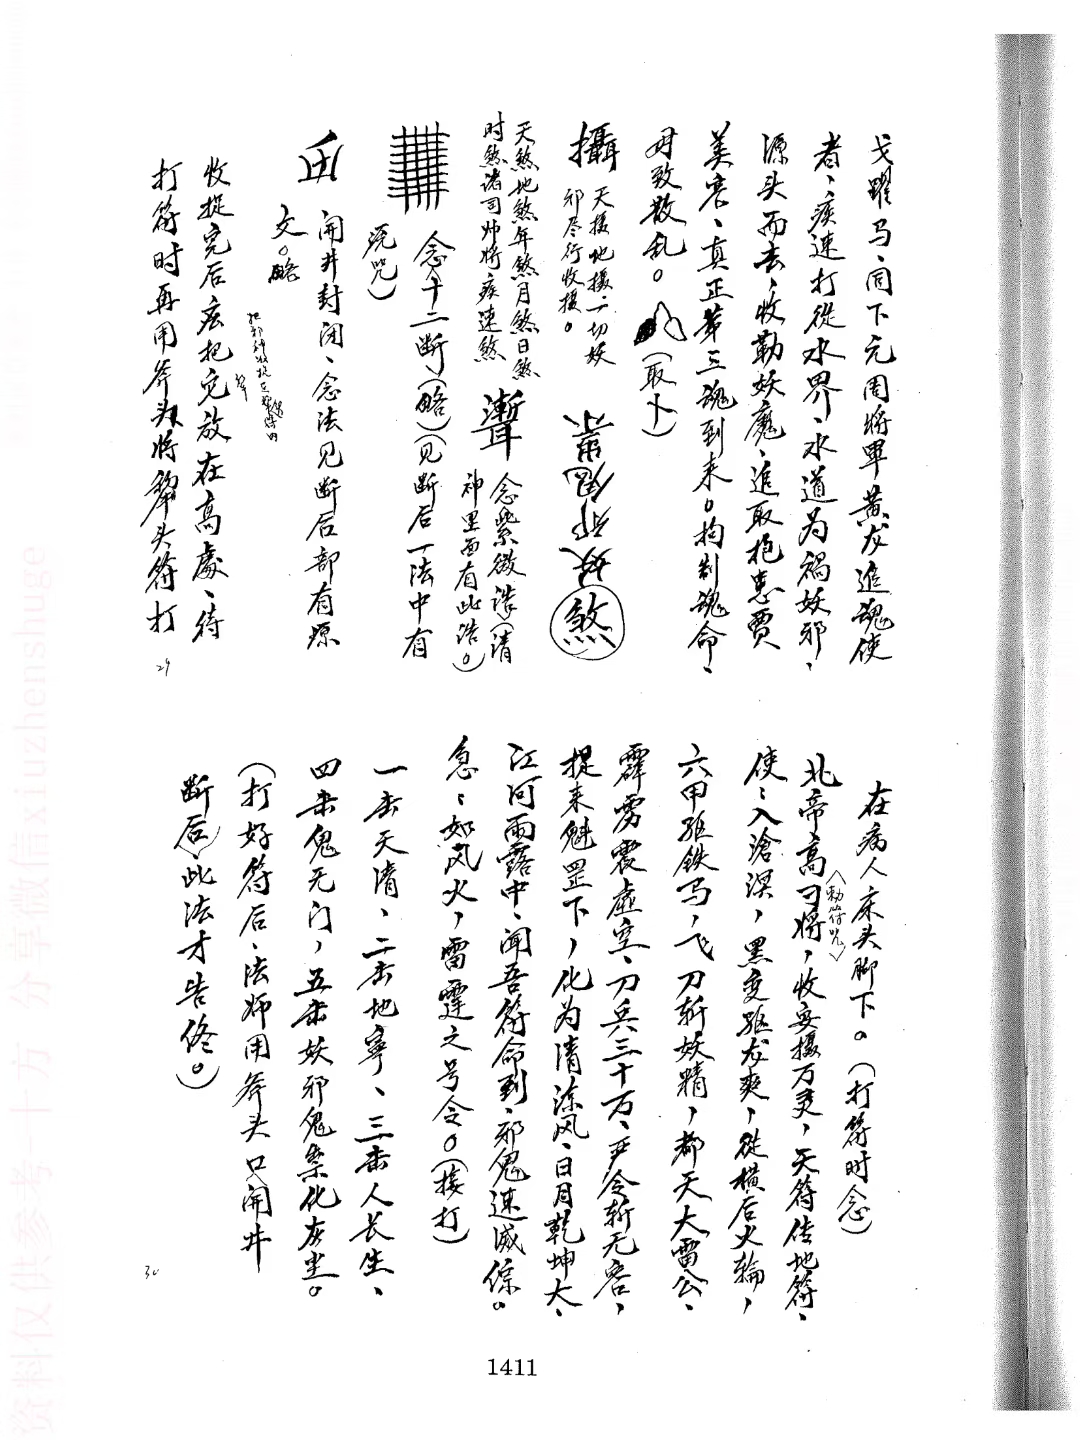 戈躍马、同下元周将軍黄龙追魂使
者、疾速打從水界、水道为祸妖邪、
源头而去，收勒妖魔、追取抱患贾
美寒、真正第三魂到来。拘制魂命、
毋致散乱。(取卜)
攝
天攝地攝、一切妖
邪尽行收攝。
煞
天煞地煞年煞月煞日煞
时煞诸司帅将疾速煞
念紫微诰(清
神里面有此诰。)
念十二断(略)(见断后一法中有
洗咒)
開井封闭、念法见断后部有原
文。略
收捉完后広把它放在高處、待
打符时再用斧头将犂头符打
29
在病人床头脚下。(打符时念)
<勅符咒>
北帝高刁将，收妄攝万灵，天符佳地符、
使、入滄溟，黑变驱龙爽，從横后火輪，
六甲驱铁马，飞刀斬妖精，都天大雷公、
霹雳震虚空、刀兵三十万、严令斬无容，
提来魁罡下，化为清凉风、日月乾坤大、
江河雨露中、闻吾符命到、邪鬼速滅倧。
急、如风火，雷霆之号令。(接打)
一击天清、二击地寧、三击人长生、
四击鬼无门，五击妖邪鬼祟化灰尘。
(打好符后、法师用斧头口開井
断后，此法才告佟。)
30
1411
资料仅供参考 十方 分享微信xiuzhenshuge